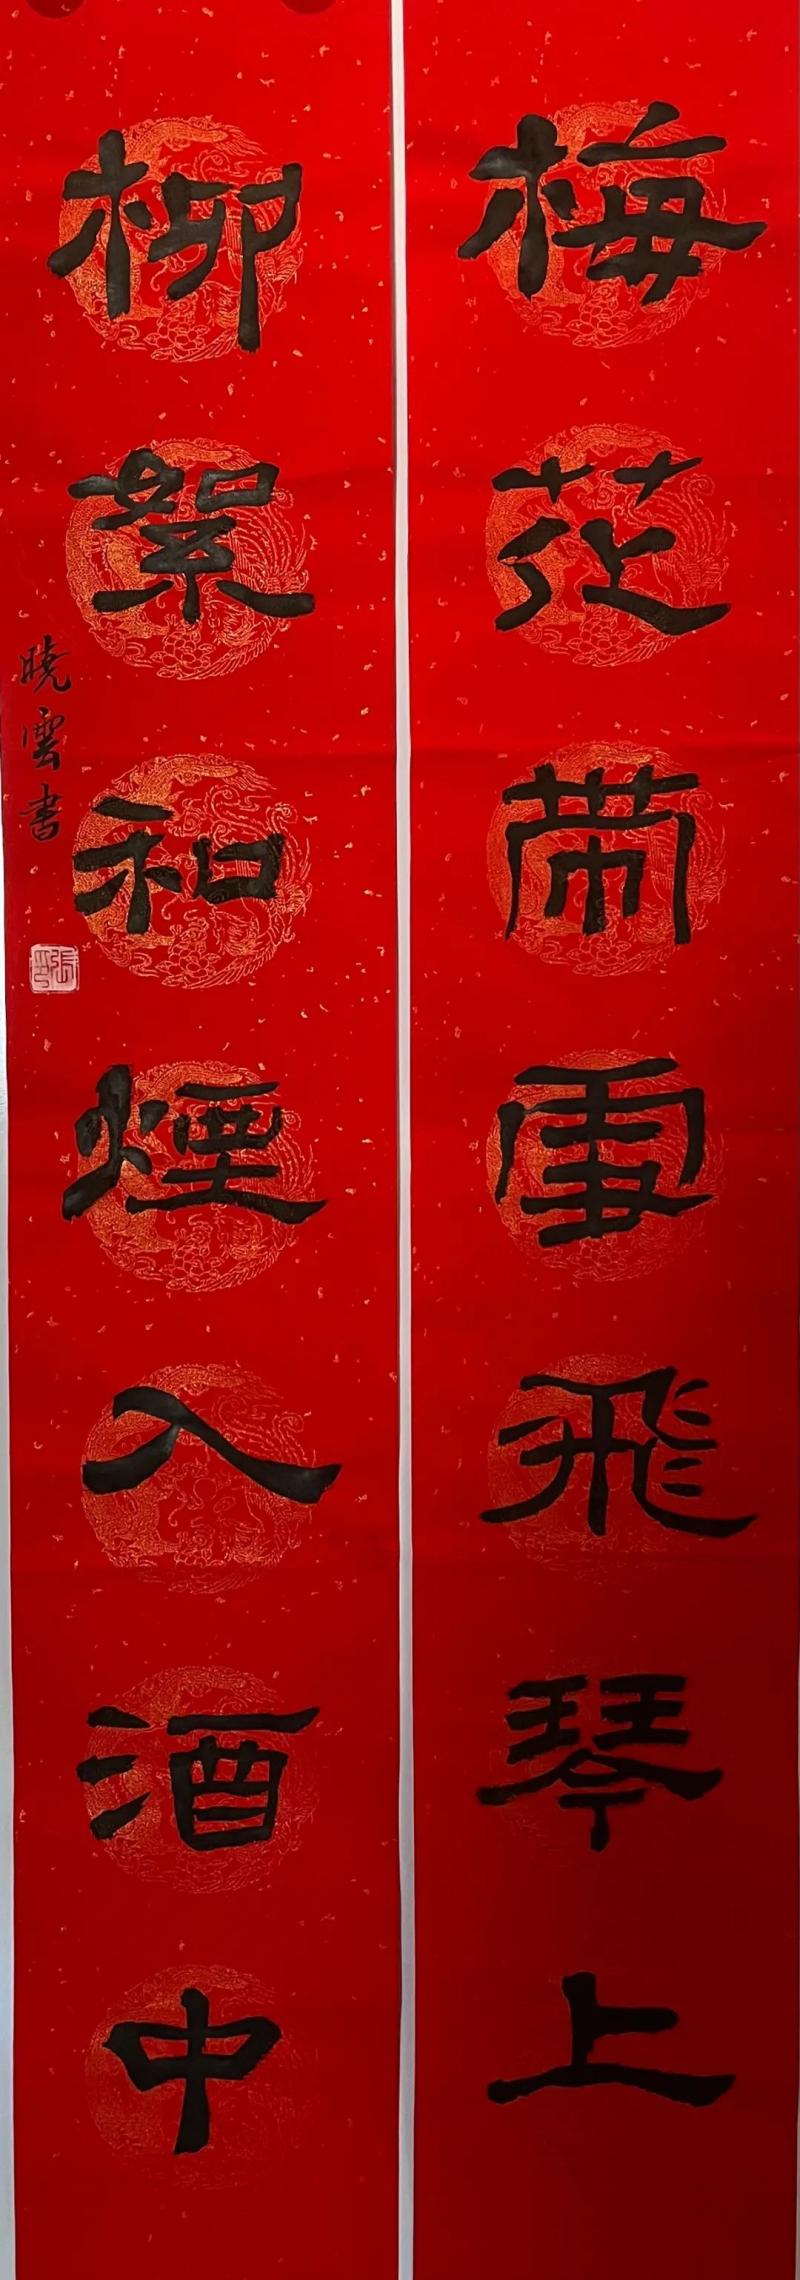 梅花帶雪飛琴上
柳絮和煙入酒中
曉雲書
張印